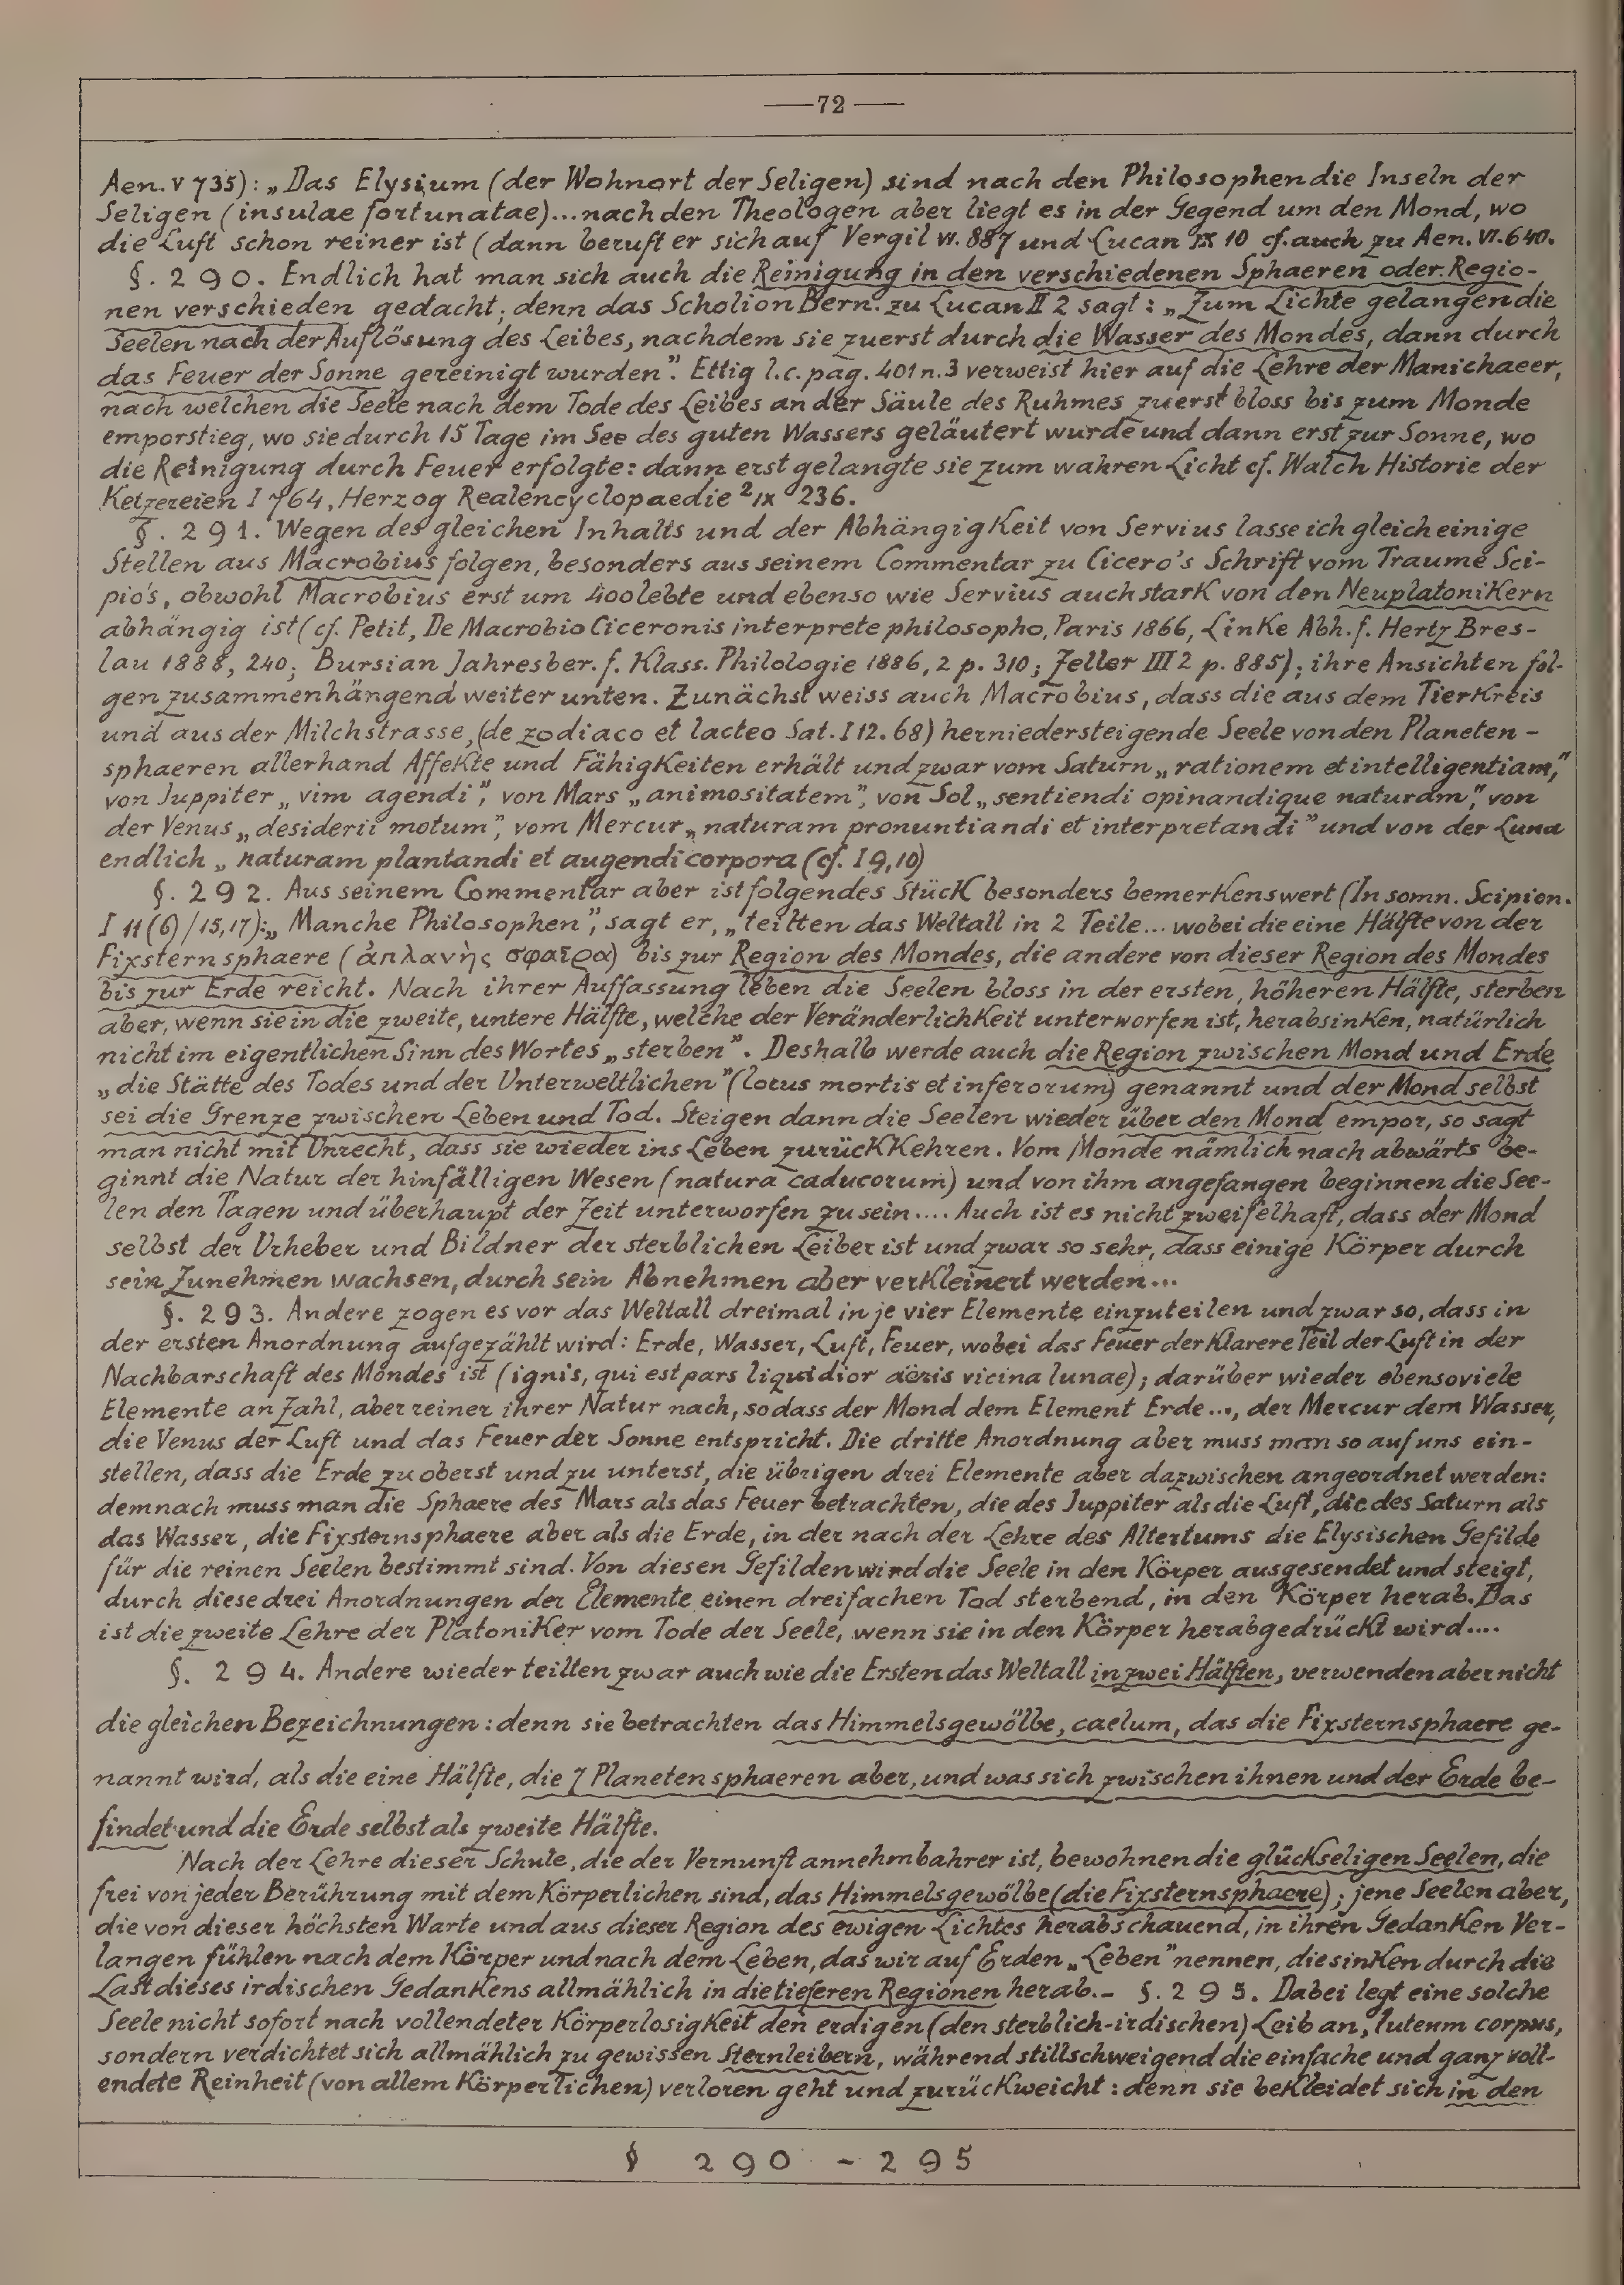 —72—
Aen. V 735): „Das Elysium (der Wohnort der Seligen) sind nach den Philosophen die Inseln der
Seligen (insulae fortunatae)... nach den Theologen aber liegt es in der Gegend um den Mond, wo
die Luft schon reiner ist (dann beruft er sich auf Vergil VI. 887 und Lucan IX 10 cf. auch zu Aen. VI. 640.
§. 290. Endlich hat man sich auch die Reinigung in den verschiedenen Sphaeren oder Regio-
nen verschieden gedacht; denn das Scholion Bern. zu Lucan II 2 sagt: „Zum Lichte gelangen die
Seelen nach der Auflösung des Leibes, nachdem sie zuerst durch die Wasser des Mondes, dann durch
das Feuer der Sonne gereinigt wurden”. Ettig l.c. pag. 401 n. 3 verweist hier auf die Lehre der Manichaeer,
nach welchen die Seele nach dem Tode des Leibes an der Säule des Ruhmes zuerst bloss bis zum Monde
emporstieg, wo sie durch 15 Tage im See des guten Wassers geläutert wurde und dann erst zur Sonne, wo
die Reinigung durch Feuer erfolgte: dann erst gelangte sie zum wahren Licht cf. Walch Historie der
Ketzereien I 764, Herzog Realencyclopaedie ²IX 236.
§. 291. Wegen des gleichen Inhalts und der Abhängigkeit von Servius lasse ich gleich einige
Stellen aus Macrobius folgen, besonders aus seinem Commentar zu Cicero's Schrift vom Traume Sci-
pio's, obwohl Macrobius erst um 400 lebte und ebenso wie Servius auch stark von den Neuplatonikern
abhängig ist (cf. Petit, De Macrobio Ciceronis interprete philosopho, Paris 1866, Linke Abh. f. Hertz Bres-
lau 1888, 240; Bursian Jahresber. f. Klass. Philologie 1886, 2 p. 310; Zeller III 2 p. 885); ihre Ansichten fol-
gen zusammenhängend weiter unten. Zunächst weiss auch Macrobius, dass die aus dem Tierkreis
und aus der Milchstrasse, (de zodiaco et lacteo Sat. I 12. 68) herniedersteigende Seele von den Planeten-
sphaeren allerhand Affekte und Fähigkeiten erhält und zwar vom Saturn „rationem et intelligentiam,”
von Juppiter „vim agendi”, von Mars „animositatem”, von Sol „sentiendi opinandique naturam”, von
der Venus „desiderii motum”, vom Mercur „naturam pronuntiandi et interpretandi” und von der Luna
endlich „naturam plantandi et augendi corpora (cf. I 9, 10)
§. 292. Aus seinem Commentar aber ist folgendes Stück besonders bemerkenswert (In somn. Scipion.
I 11 (6) /15, 17): „Manche Philosophen”, sagt er, „teilten das Weltall in 2 Teile... wobei die eine Hälfte von der
Fixsternsphaere (ἀπλανὴς σφαῖρα) bis zur Region des Mondes, die andere von dieser Region des Mondes
bis zur Erde reicht. Nach ihrer Auffassung leben die Seelen bloss in der ersten, höheren Hälfte, sterben
aber, wenn sie in die zweite, untere Hälfte, welche der Veränderlichkeit unterworfen ist, herabsinken, natürlich
nicht im eigentlichen Sinn des Wortes „sterben”. Deshalb werde auch die Region zwischen Mond und Erde
„die Stätte des Todes und der Unterweltlichen” (locus mortis et inferorum) genannt und der Mond selbst
sei die Grenze zwischen Leben und Tod. Steigen dann die Seelen wieder über den Mond empor, so sagt
man nicht mit Unrecht, dass sie wieder ins Leben zurückkehren. Vom Monde nämlich nach abwärts be-
ginnt die Natur der hinfälligen Wesen (natura caducorum) und von ihm angefangen beginnen die See-
len den Tagen und überhaupt der Zeit unterworfen zu sein.... Auch ist es nicht zweifelhaft, dass der Mond
selbst der Urheber und Bildner der sterblichen Leiber ist und zwar so sehr, dass einige Körper durch
sein Zunehmen wachsen, durch sein Abnehmen aber verkleinert werden...
§. 293. Andere zogen es vor das Weltall dreimal in je vier Elemente einzuteilen und zwar so, dass in
der ersten Anordnung aufgezählt wird: Erde, Wasser, Luft, Feuer, wobei das Feuer der klarere Teil der Luft in der
Nachbarschaft des Mondes ist (ignis, qui est pars liquidior aëris vicina lunae); darüber wieder ebensoviele
Elemente an Zahl, aber reiner ihrer Natur nach, sodass der Mond dem Element Erde..., der Mercur dem Wasser,
die Venus der Luft und das Feuer der Sonne entspricht. Die dritte Anordnung aber muss man so auf uns ein-
stellen, dass die Erde zu oberst und zu unterst, die übrigen drei Elemente aber dazwischen angeordnet werden:
demnach muss man die Sphaere des Mars als das Feuer betrachten, die des Juppiter als die Luft, die des Saturn als
das Wasser, die Fixsternsphaere aber als die Erde, in der nach der Lehre des Altertums die Elysischen Gefilde
für die reinen Seelen bestimmt sind. Von diesen Gefilden wird die Seele in den Körper ausgesendet und steigt,
durch diese drei Anordnungen der Elemente einen dreifachen Tod sterbend, in den Körper herab. Das
ist die zweite Lehre der Platoniker vom Tode der Seele, wenn sie in den Körper herabgedrückt wird....
§. 294. Andere wieder teilten zwar auch wie die Ersten das Weltall in zwei Hälften, verwenden aber nicht
die gleichen Bezeichnungen: denn sie betrachten das Himmelsgewölbe, caelum, das die Fixsternsphaere ge-
nannt wird, als die eine Hälfte, die 7 Planetensphaeren aber, und was sich zwischen ihnen und der Erde be-
findet und die Erde selbst als zweite Hälfte.
Nach der Lehre dieser Schule, die der Vernunft annehmbahrer ist, bewohnen die glückseligen Seelen, die
frei von jeder Berührung mit dem Körperlichen sind, das Himmelsgewölbe (die Fixsternsphaere); jene Seelen aber,
die von dieser höchsten Warte und aus dieser Region des ewigen Lichtes herabschauend, in ihren Gedanken Ver-
langen fühlen nach dem Körper und nach dem Leben, das wir auf Erden „Leben” nennen, die sinken durch die
Last dieses irdischen Gedankens allmählich in die tieferen Regionen herab.– §. 295. Dabei legt eine solche
Seele nicht sofort nach vollendeter Körperlosigkeit den erdigen (den sterblich-irdischen) Leib an, luteum corpus,
sondern verdichtet sich allmählich zu gewissen Sternleibern, während stillschweigend die einfache und ganz voll-
endete Reinheit (von allem Körperlichen) verloren geht und zurückweicht: denn sie bekleidet sich in den
§ 290 - 295